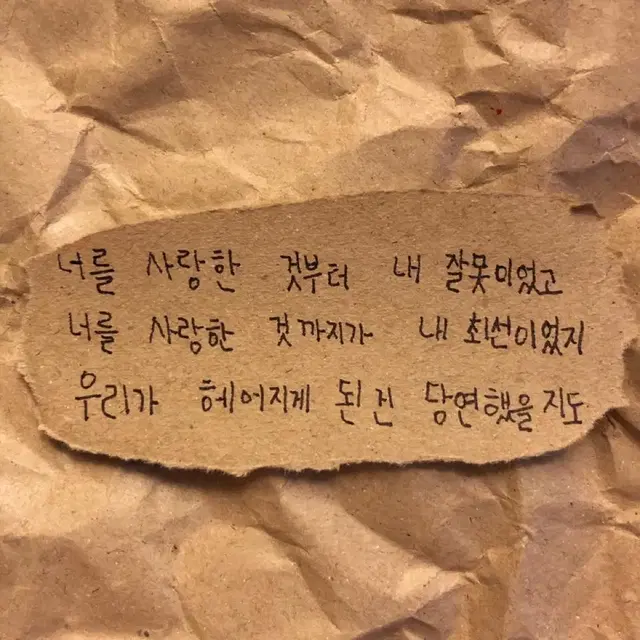 너를 사랑한 것부터 내 잘못이었고
너를 사랑한 것까지가 내 최선이었지
우리가 헤어지게 된 건 당연했을지도